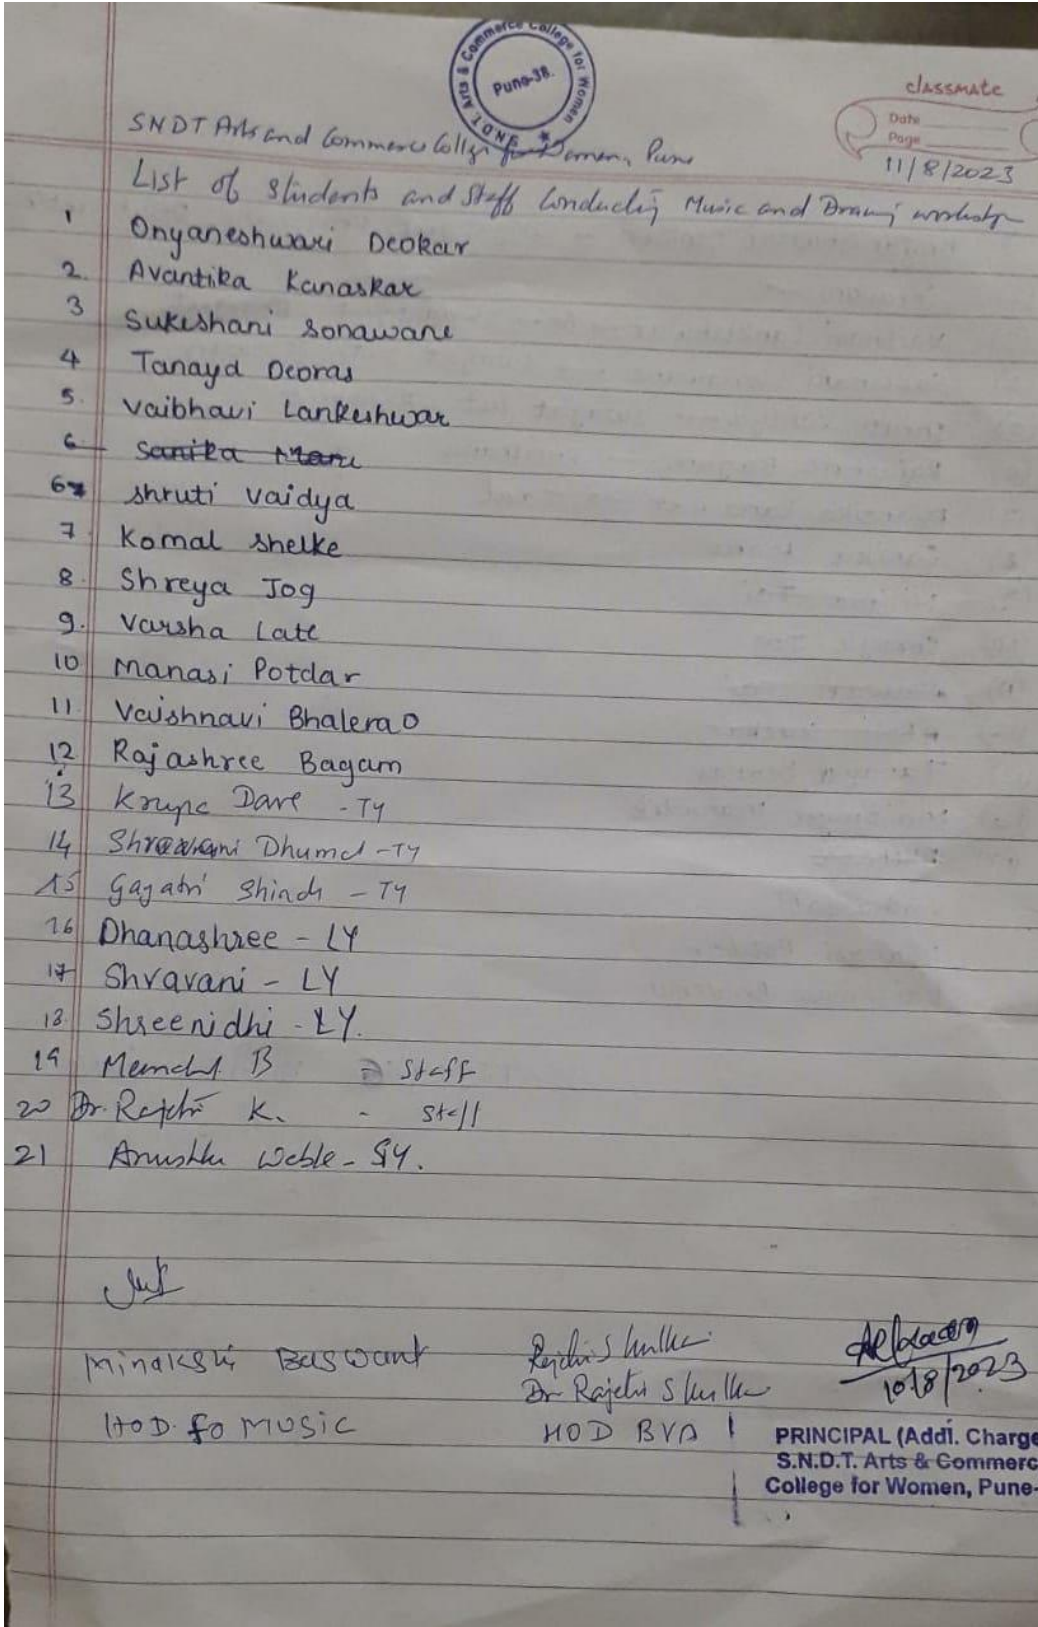 SNDT Arts & Commerce College for Women
Pune-38.
classmate
Date
Page
11/8/2023
SNDT Arts and Commerce College for Women, Pune
List of Students and Staff Conducting Music and Drawing workshop
1 Dnyaneshwari Deokar
2. Avantika Kanaskar
3 Sukeshani Sonawane
4 Tanaya Deoras
5. Vaibhavi Lankeshwar
6 Sanika Mane
6 Shruti Vaidya
7 Komal Shelke
8. Shreya Jog
9. Varsha Late
10 Manasi Potdar
11 Vaishnavi Bhalerao
12 Rajashree Bagam
13 Krupa Dave - TY
14 Shravani Dhumal - TY
15 Gayatri Shinde - TY
16 Dhanashree - LY
17 Shravani - LY
18. Shreenidhi - LY.
19 B - Staff
20 Dr. K. - Staff
21 Anushka Weble - SY.
Minakshi Baswant
HOD fo MUSIC
HOD BVA
10/8/2023
PRINCIPAL (Addl. Charge
S.N.D.T. Arts & Commerc
College for Women, Pune-